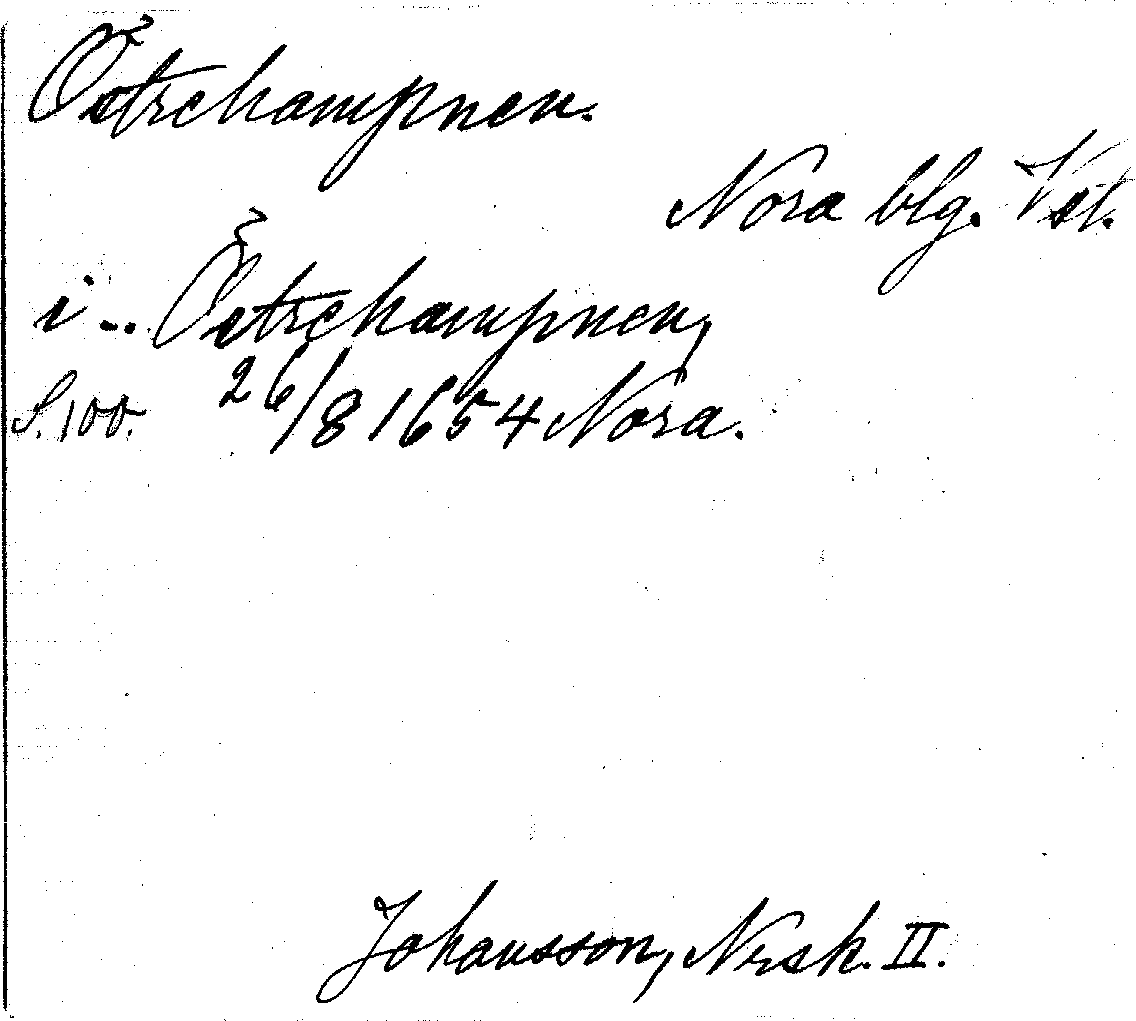 Östrehampnen.
Nora blg. Vst.
i .. Östrehampnen,
S. 100. 26/8 1654 Nora.
Johansson, Nrsk. II.